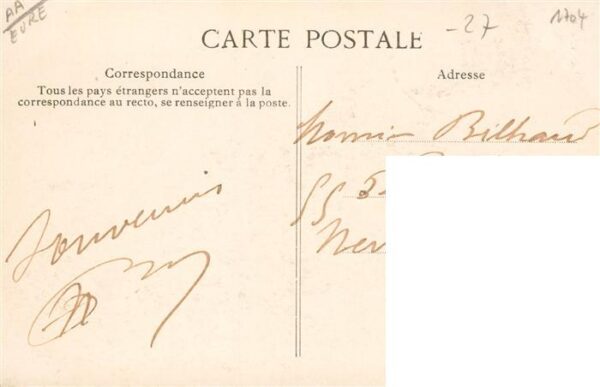 AA
EURE
-27
1704
CARTE POSTALE
Correspondance
Tous les pays étrangers n'acceptent pas la
correspondance au recto, se renseigner à la poste.
Adresse
Souvenir
Monsieur Bilhaud
55